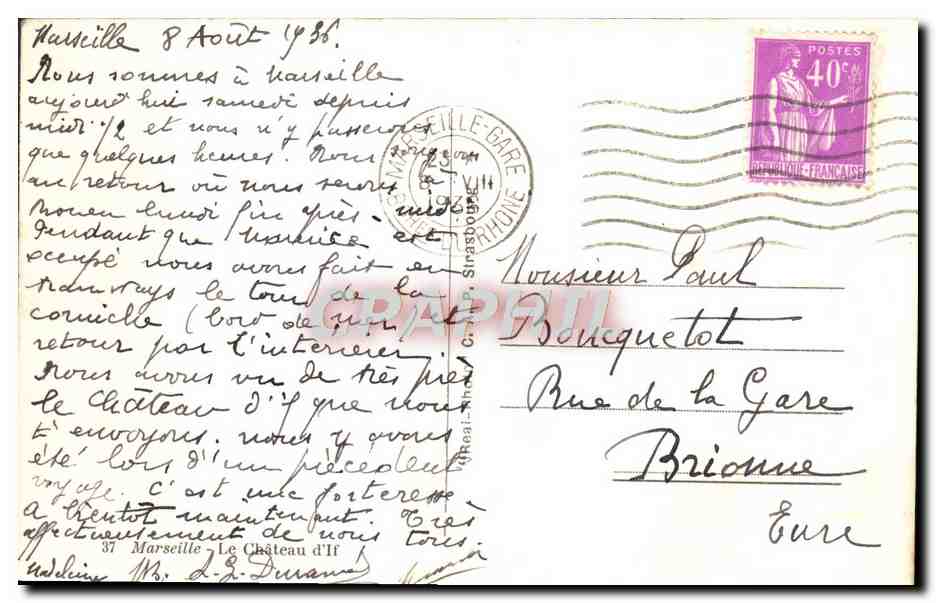 Marseille 8 Août 1936.
Nous sommes à Marseille
aujourd'hui samedi depuis
midi 1/2 et nous n'y passerons
que quelques heures. Nous
au retour où nous serons à
Rouen lundi fin après-midi
Pendant que Maurice est
occupé nous avons fait en
tramways le tour de la
corniche (bord de mer) et
retour par l'intérieur.
Nous avons vu de très près
le Château d'If que nous
t'envoyons. nous y avons
été lors d'un précédent
voyage. C'est une forteresse
A bientôt maintenant. Très
affectueusement de nous tous.
37 Marseille - Le Château d'If
Madeleine
MARSEILLE-GARE
8 VIII
BCHES DU RHONE
"Real-Photo" C. A. P. Strasbourg
CRAPHIL
POSTES
40c
REPUBLIQUE-FRANÇAISE
Monsieur Paul
Boucquetot
Rue de la Gare
Brionne
Eure